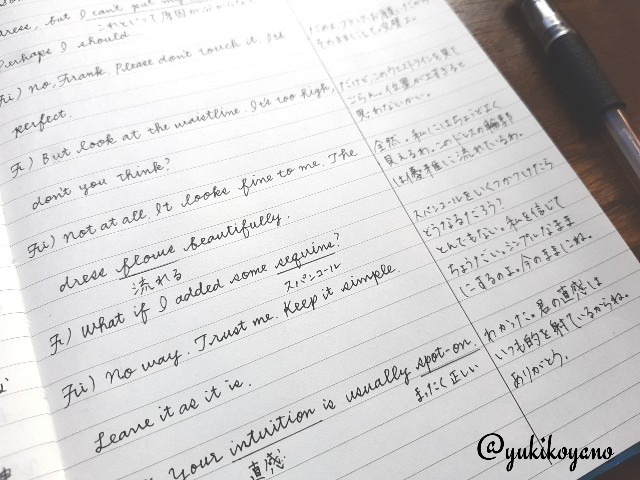 dress, but I can't put my
これといって原因が分からない
Perhaps I should
Fri) No, Frank. Please don't touch it. It's
perfect.
Fr) But look at the waistline. It's too high,
don't you think?
Fri) Not at all. It looks fine to me. The
dress flows beautifully.
流れる
Fr) What if I added some sequins?
スパンコール
Fri) No way. Trust me. Keep it simple.
Leave it as it is.
Your intuition is usually spot-on.
直感
まったく正しい
そのままにして。完璧よ。
だけど、このウエストラインを見て
ごらん。位置が高すぎると
思わないかい。
全然。私にはちょうどよく
見えるわ。このドレスの輪郭
は優雅に流れているわ。
スパンコールをいくつかつけたら
どうなるだろう?
とんでもない。私を信じて
ちょうだい。シンプルなまま
にするのよ。今のままにね。
わかった。君の直感は
いつも的を射ているからね。
ありがとう。
@yukikoyano